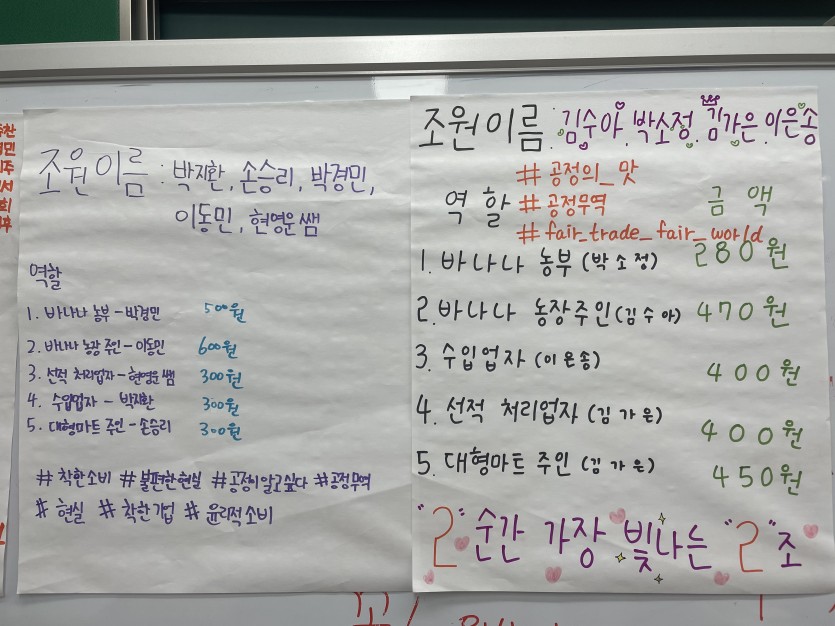 조원이름 : 박지환, 손승리, 박경민,
이동민, 현영운 쌤
역할
1. 바나나 농부 - 박경민 500원
2. 바나나 농장 주인 - 이동민 600원
3. 선적 처리업자 - 현영운 쌤 300원
4. 수입업자 - 박지환 300원
5. 대형마트 주인 - 손승리 300원
#착한소비 #불편한현실 #공정히알고싶다 #공정무역
# 현실 # 착한기업 # 윤리적소비
조원이름 : 김수아, 박소정, 김가은, 이은송
# 공정의_맛
역할 # 공정무역 금액
# fair_trade_fair_world
1. 바나나 농부 (박소정) 280원
2. 바나나 농장주인 (김수아) 470원
3. 수입업자 (이은송) 400원
4. 선적 처리업자 (김가은) 400원
5. 대형마트 주인 (김가은) 450원
"2"순간 가장 빛나는 "2"조